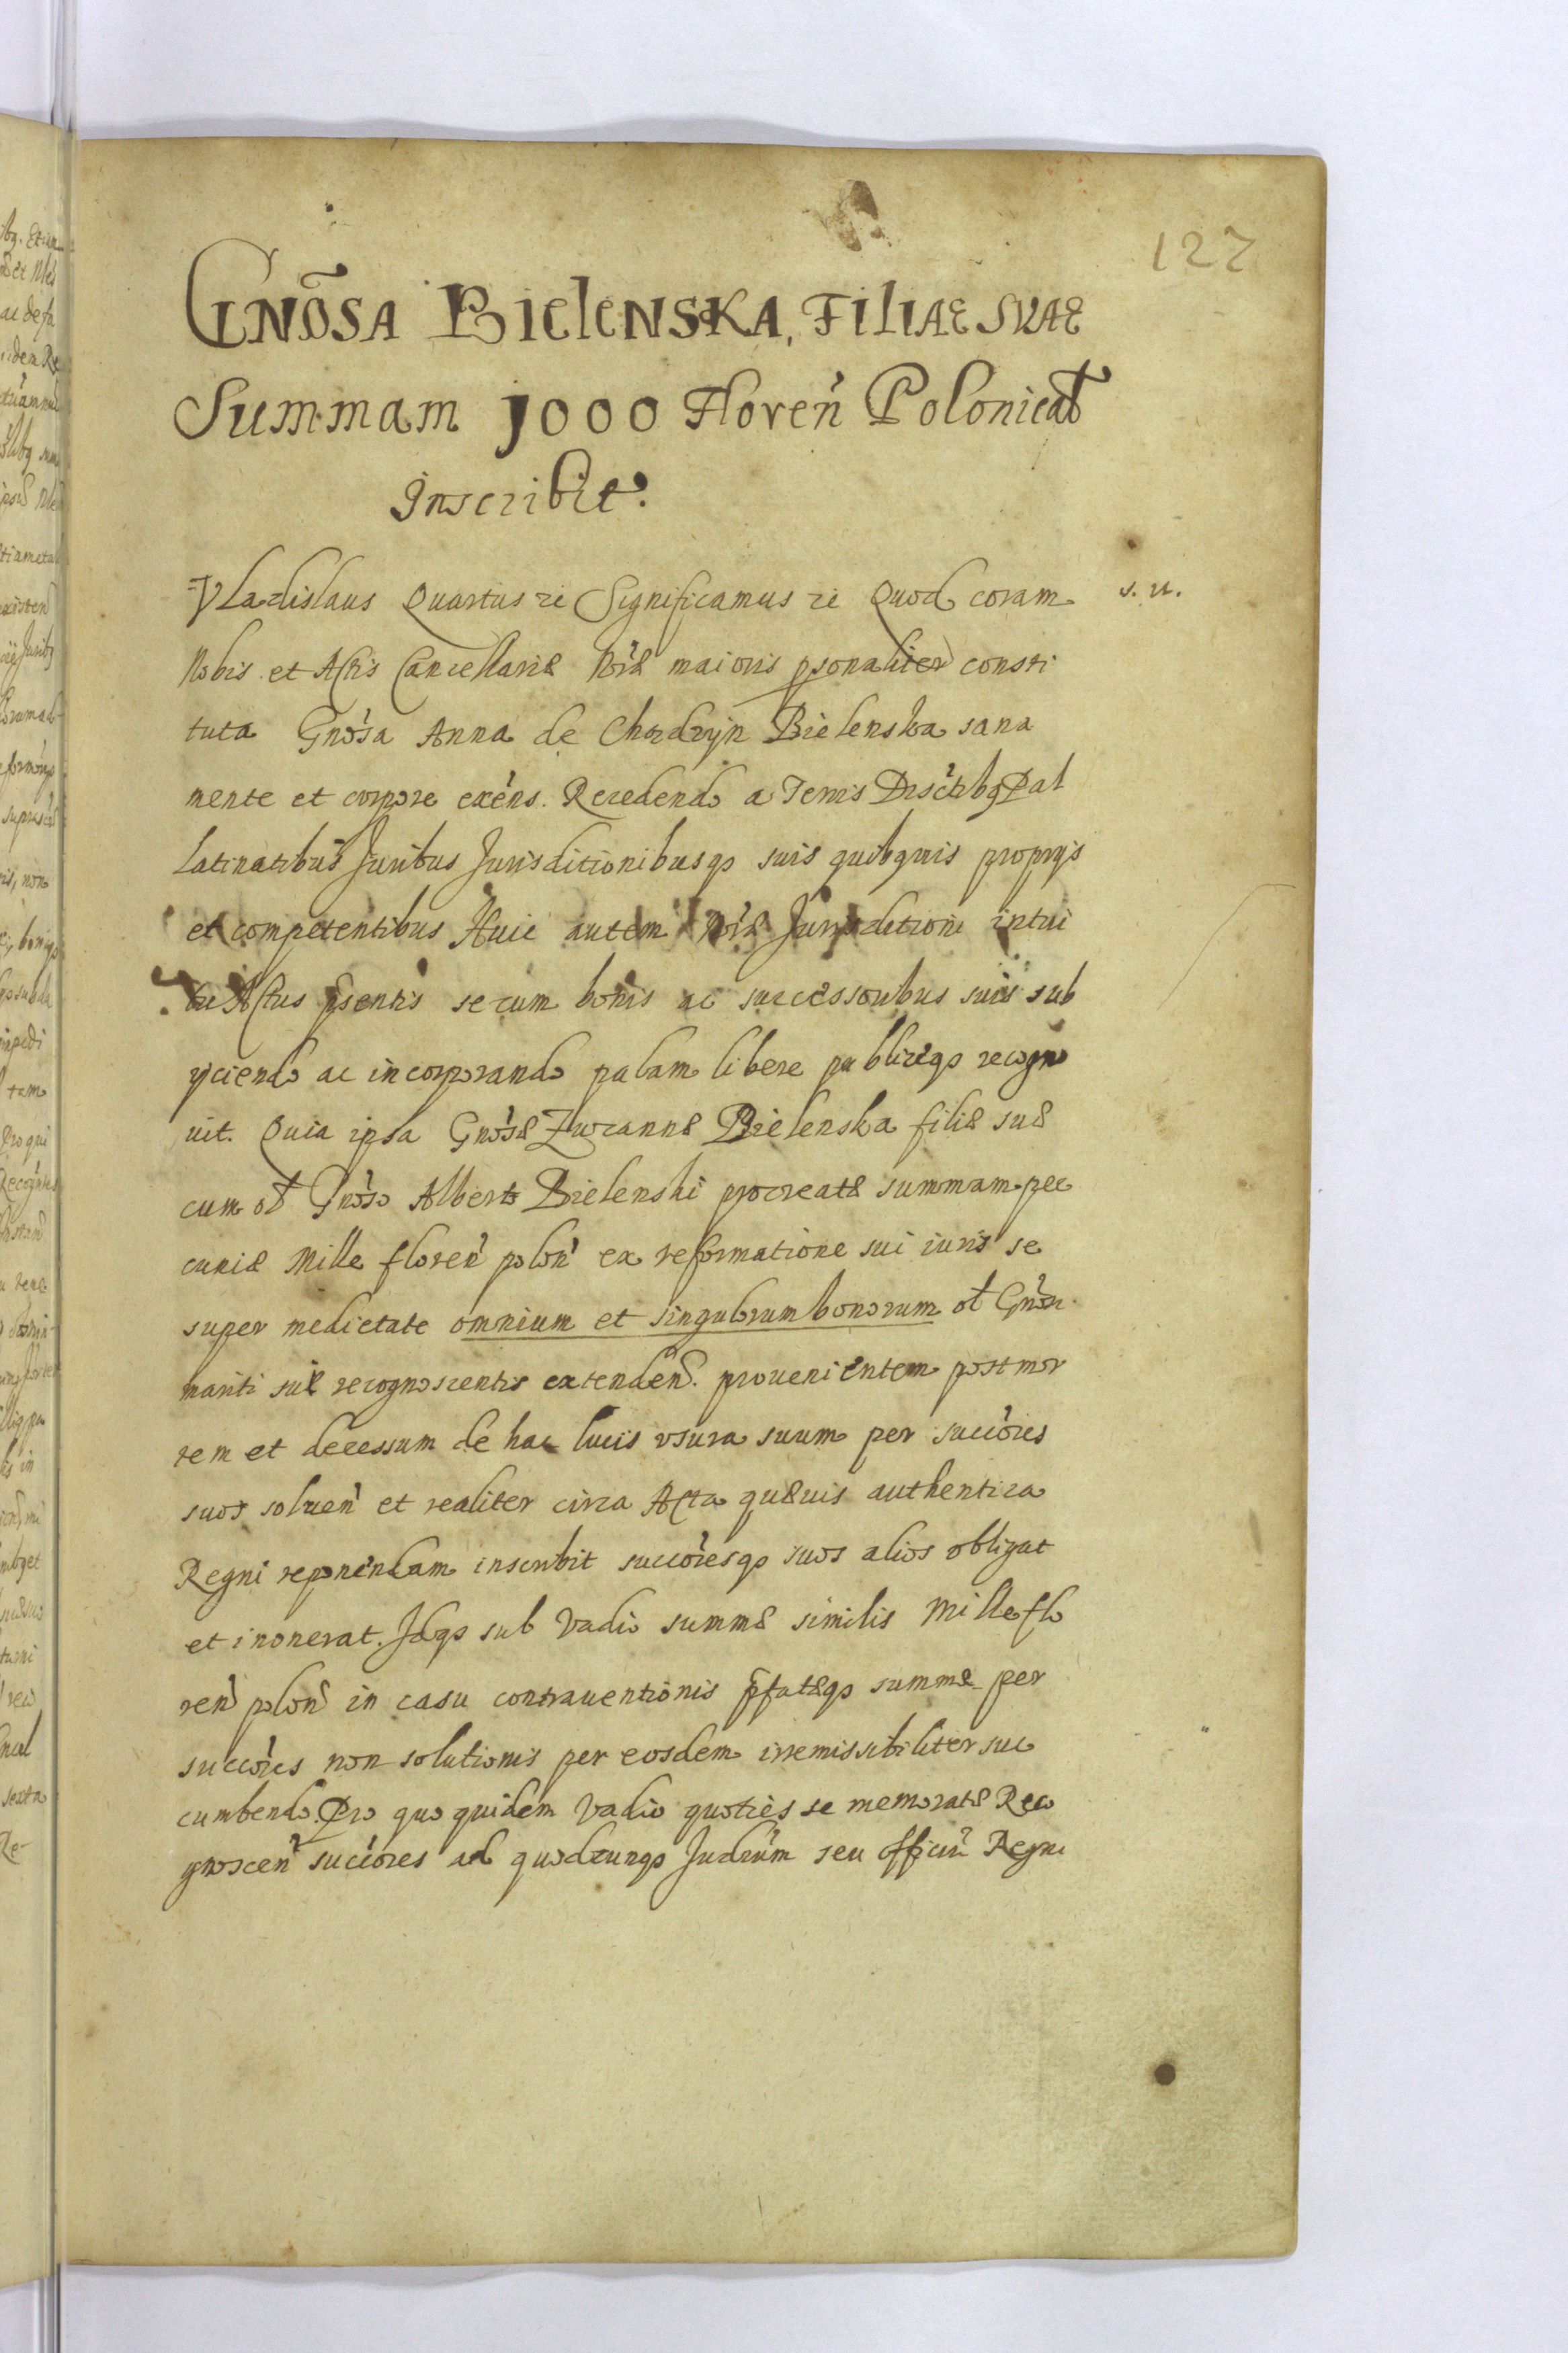 127
Gnõsa Bielenska, Filiae suae
Summam 1000 Floreń Polonical
Inscribit.
Vladislaus Quartus etc Significamus etc Quod coram s. n.
Nobis et Actis Cancellariæ Nr̃æ maioris psonaliter consti
tuta Gnõsa Anna de Chodzyn Bielenska sana
mente et corpore exẽns. Recedendo a Terris Disctibq Pal
latinatibus Juribus Jurisditionibusq suis quibquis proprijs
et competentibus Huic autem Nr̃æ Jurisditioni intui
tu Actus pñsentis se cum bonis ac successoribus suis sub
ijciendo ac incorporando palam libere publiceq recogno
uit. Quia ipsa Gnõsæ Zuzannæ Bielenska filiæ suæ
cum ol Gnõso Alberto Bielenski procreatæ summam pec
cuniæ Mille floreń poloń ex reformatione sui iuris se
super medietate omnium et singulorum bonorum ol Gnõsi
mariti sui recognoscentis extendeń. prouenientem post mor
tem et decessum de hac lucis vsura suum per succões
suos solueń et realiter circa Acta quæuis authentica
Regni reponendam inscribit succõresq suos alios obligat
et inonerat. Idq sub Vadio summæ similis Mille flo
reń poloń in casu contrauentionis pfatæq summæ per
succõres non solutionis per eosdem irremissibiliter suc
cumbendo. Pro quo quidem Vadio quoties se memoratæ Reco
gnosceń succõres ad quodcunq Judiciũm seu officiũ Regni